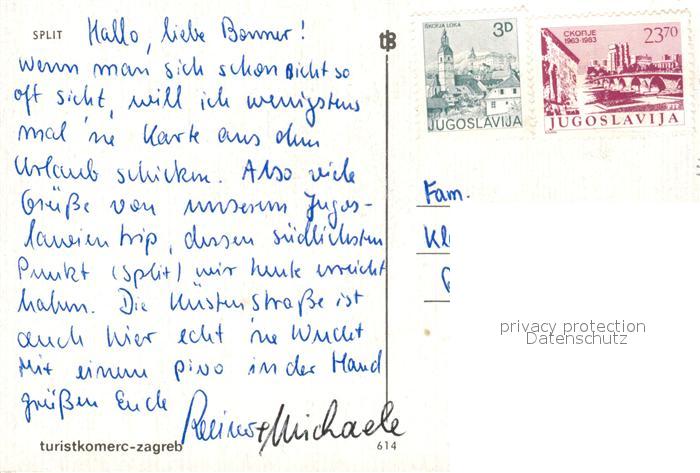 SPLIT
Hallo, liebe Bonner!
wenn man sich schon nicht so
oft sieht, will ich wenigstens
mal 'ne Karte aus dem
Urlaub schicken. Also viele
Grüße von unserem Jugos-
lawientrip, dessen südlichsten
Punkt (Split) wir heute erreicht
haben. Die Küstenstraße ist
auch hier echt 'ne Wucht
Mit einem pivo in der Hand
grüßen Euch
Reiner + Michaele
turistkomerc-zagreb
614
tB
ŠKOFJA LOKA
3D
JUGOSLAVIJA
СКОПЈЕ
1963-1983
23.70
JUGOSLAVIJA
Fam.
Kl
privacy protection
Datenschutz